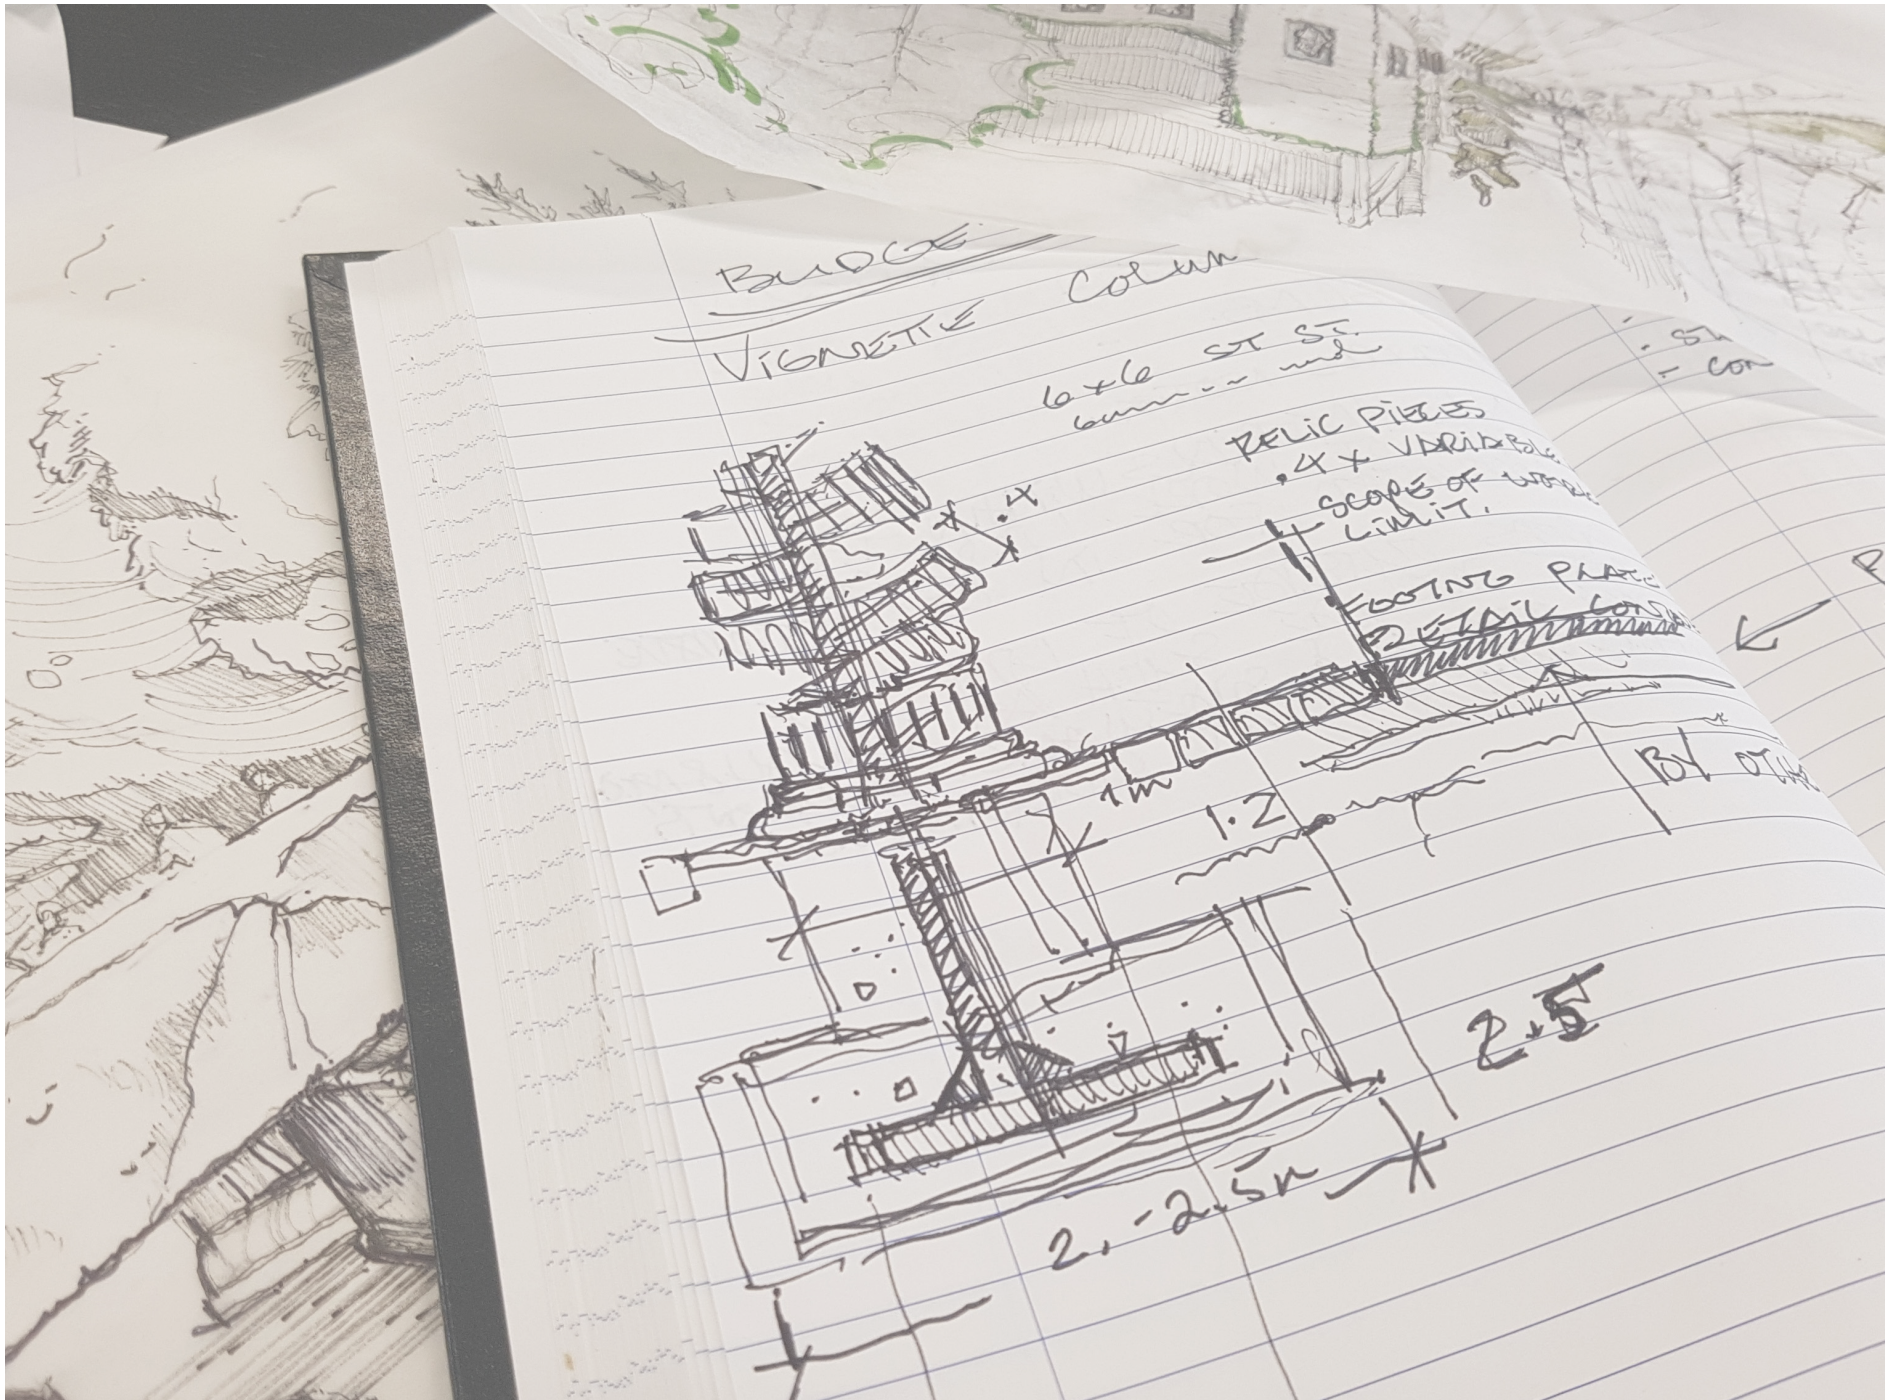 BUDGE
VIGNETTE Colum
6x6 ST ST.
RELIC PIECES
.4 x VARIABL
SCOPE OF WORK
LIMIT.
FOOTING PLATE
DETAIL CON
.4
1m
1.2
BY OTHE
2.5
2. - 2.5m
· ST
- CON